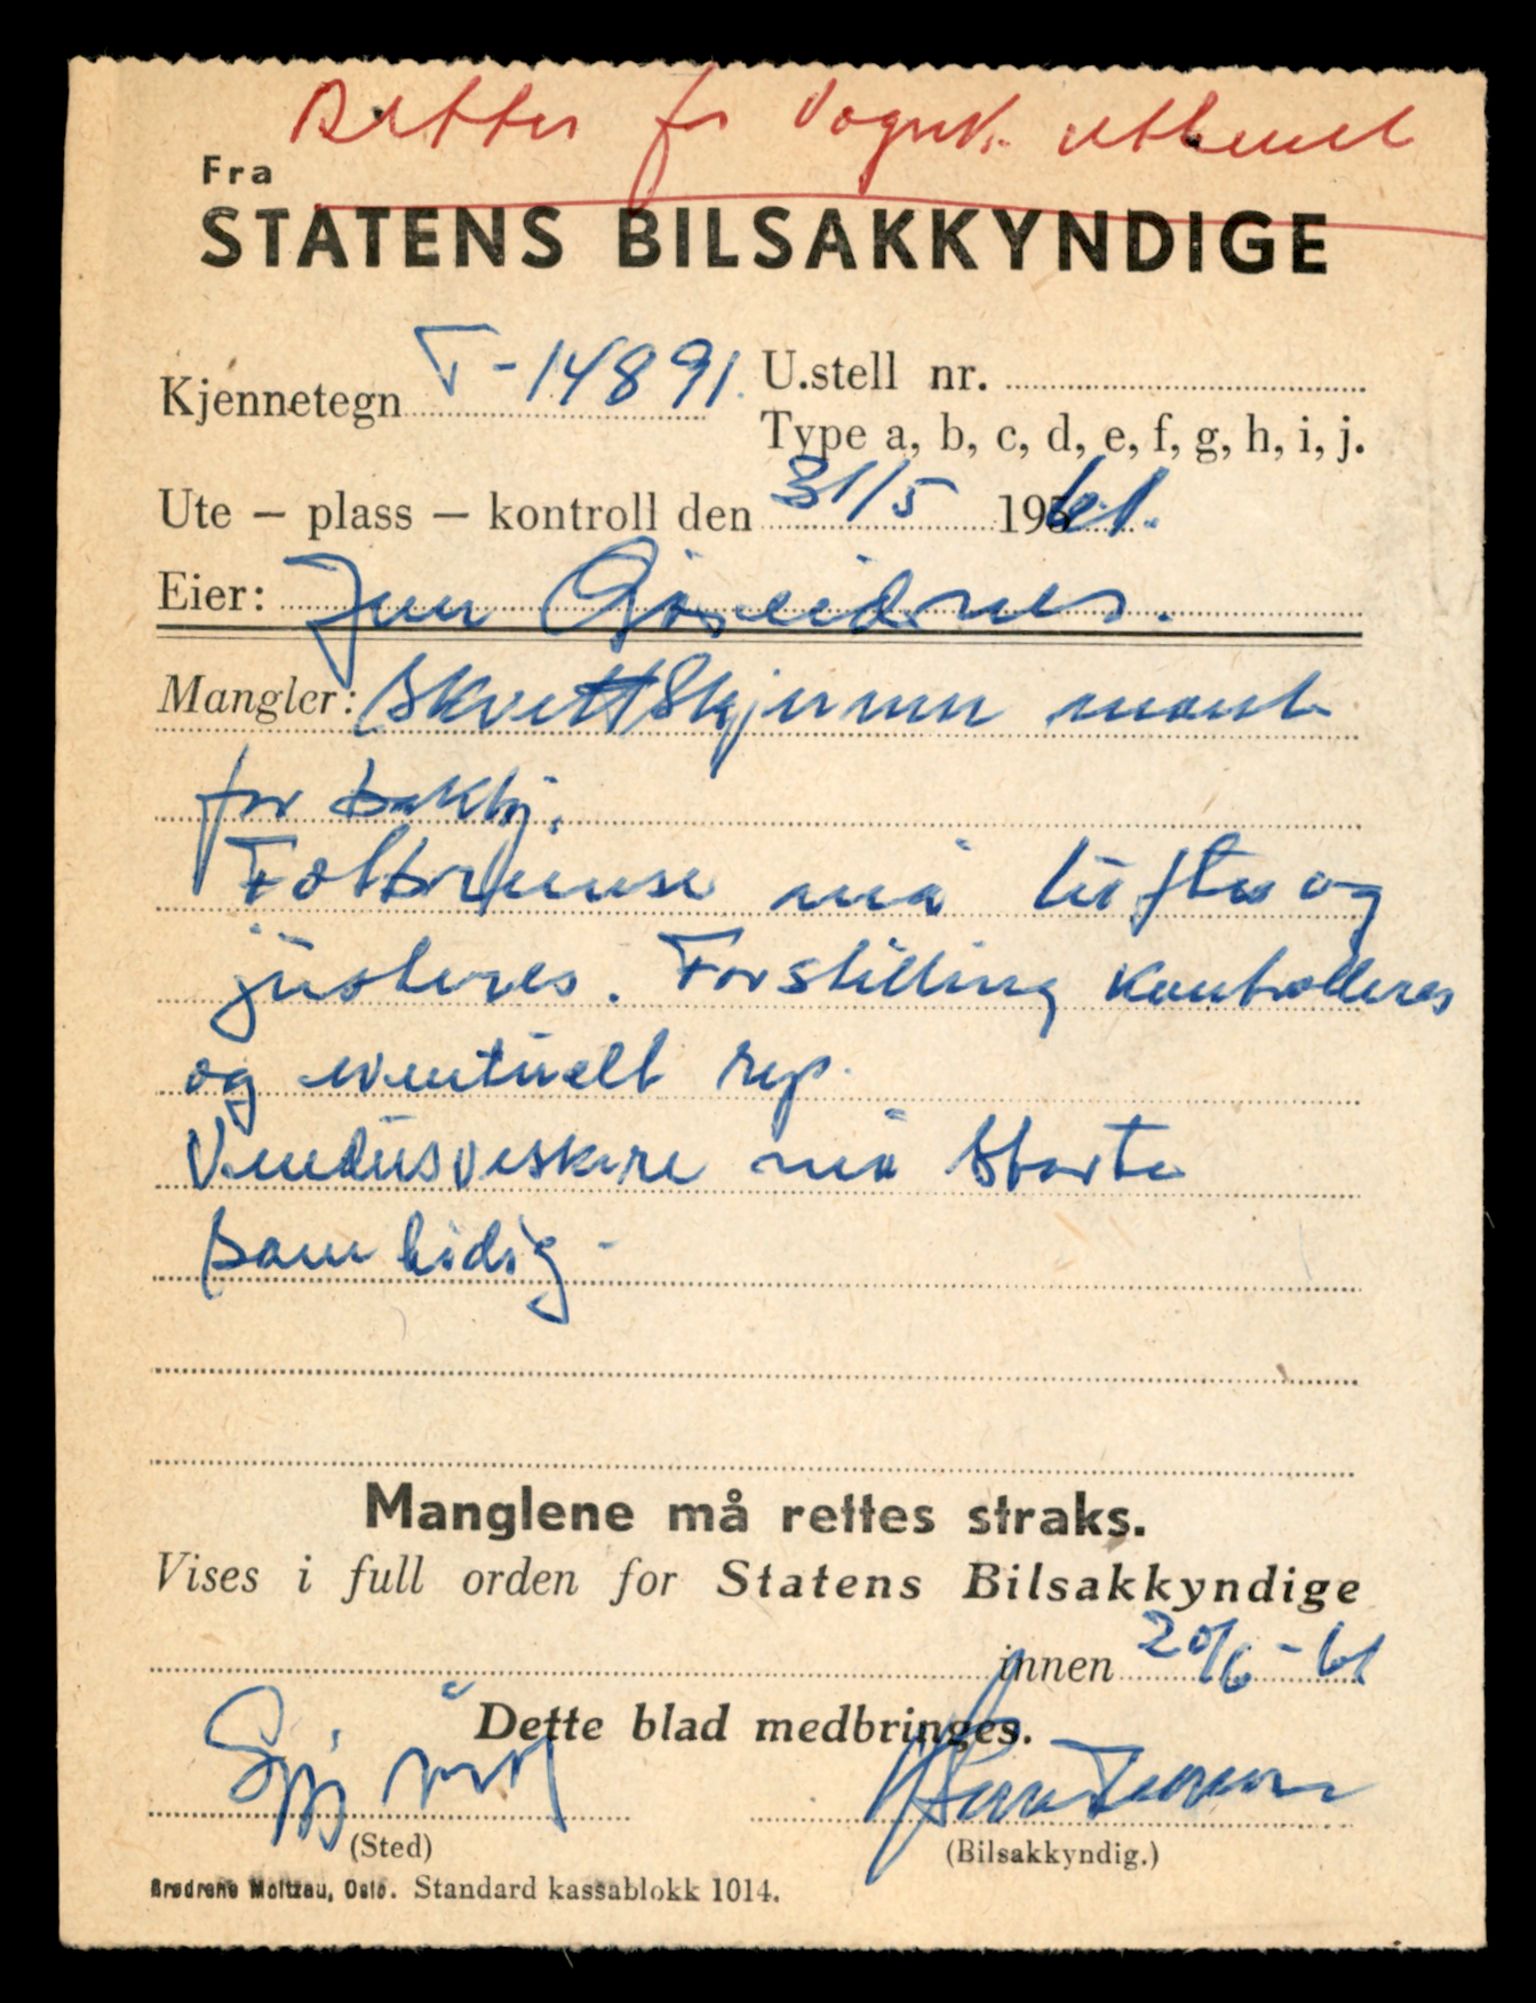 Retter for Vognk. utkuel
Fra
STATENS BILSAKKYNDIGE
Kjennetegn T-14891. U.stell nr.
Type a, b, c, d, e, f, g, h, i, j.
Ute – plass – kontroll den 31/5 1961.
Eier: Jens Gjøseidnes.
Mangler: Skvettskjermer mont.
for bakhj.
Fotbremse må luftes og
justeres. Forstilling kontrolleres
og eventuelt rep.
Vindusviskere må starte
samtidig.
Manglene må rettes straks.
Vises i full orden for Statens Bilsakkyndige
innen 20/6-61
Dette blad medbringes.
(Sted)
(Bilsakkyndig.)
Brødrene Moltzau, Oslo. Standard kassablokk 1014.